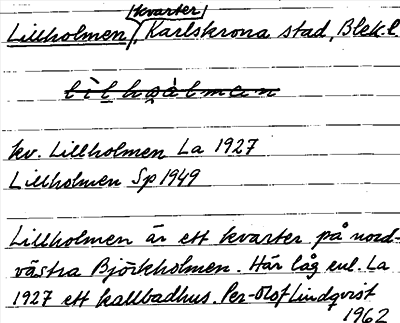 Lillholmen, kvarter, Karlskrona stad, Blek.l.
kv. Lillholmen La 1927
Lillholmen Sp 1949
Lillholmen är ett kvarter på nord-
västra Björkholmen. Här låg enl. La
1927 ett kallbadhus. Per-Olof Lindqvist
1962